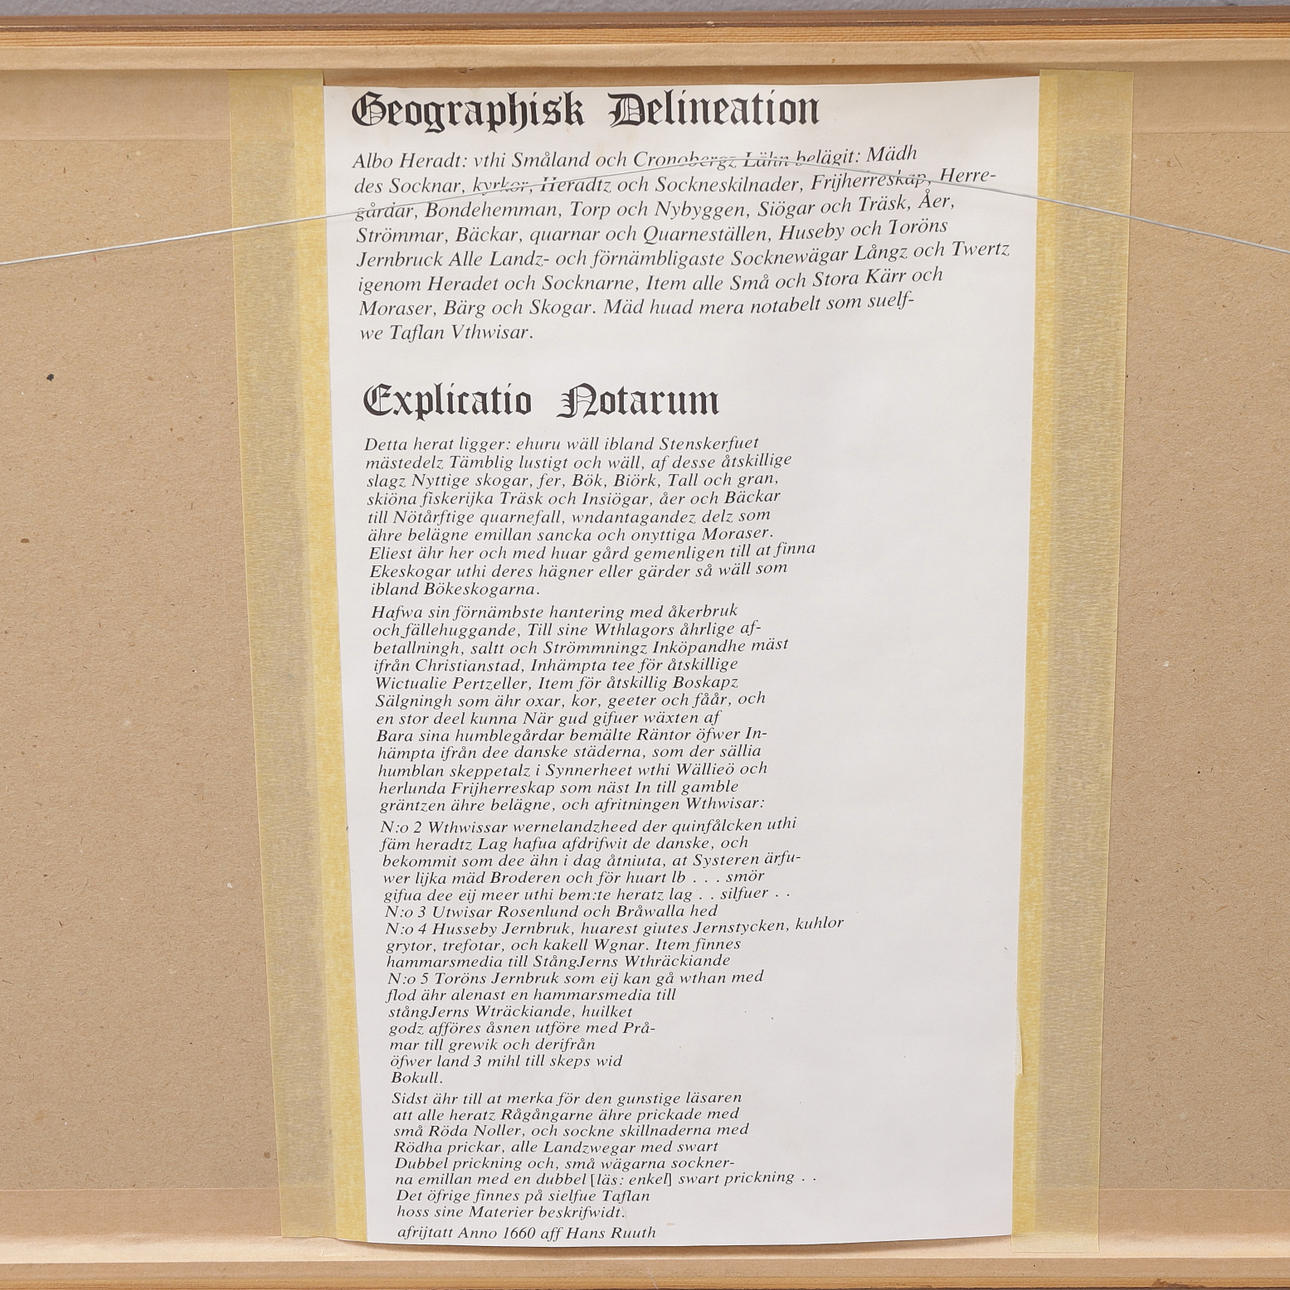 Geographisk Delineation
Albo Heradt: vthi Småland och Cronobergz Lähn belägit: Mädh
des Socknar, kyrkor, Heradtz och Sockneskilnader, Frijherreskap, Herre-
gårdar, Bondehemman, Torp och Nybyggen, Siögar och Träsk, Åer,
Strömmar, Bäckar, quarnar och Quarneställen, Huseby och Toröns
Jernbruck Alle Landz- och förnämbligaste Socknewägar Långz och Twertz
igenom Heradet och Socknarne, Item alle Små och Stora Kärr och
Moraser, Bärg och Skogar. Mäd huad mera notabelt som suelf-
we Taflan Vthwisar.
Explicatio Notarum
Detta herat ligger: ehuru wäll ibland Stenskerfuet
mästedelz Tämblig lustigt och wäll, af desse åtskillige
slagz Nyttige skogar, fer, Bök, Biörk, Tall och gran,
skiöna fiskerijka Träsk och Insiögar, åer och Bäckar
till Nötårftige quarnefall, wndantagandez delz som
ähre belägne emillan sancka och onyttiga Moraser.
Eliest ähr her och med huar gård gemenligen till at finna
Ekeskogar uthi deres hägner eller gärder så wäll som
ibland Bökeskogarna.
Hafwa sin förnämbste hantering med åkerbruk
och fällehuggande, Till sine Wthlagors åhrlige af-
betallningh, saltt och Strömmningz Inköpandhe mäst
ifrån Christianstad, Inhämpta tee för åtskillige
Wictualie Pertzeller, Item för åtskillig Boskapz
Sälgningh som ähr oxar, kor, geeter och fåår, och
en stor deel kunna När gud gifuer wäxten af
Bara sina humblegårdar bemälte Räntor öfwer In-
hämpta ifrån dee danske städerna, som der sällia
humblan skeppetalz i Synnerheet wthi Wällieö och
herlunda Frijherreskap som näst In till gamble
gräntzen ähre belägne, och afritningen Wthwisar:
N:o 2 Wthwissar wernelandzheed der quinfålcken uthi
fäm heradtz Lag hafua afdrifwit de danske, och
bekommit som dee ähn i dag åtniuta, at Systeren ärfu-
wer lijka mäd Broderen och för huart lb . . . smör
gifua dee eij meer uthi bem:te heratz lag . . silfuer . .
N:o 3 Utwisar Rosenlund och Bråwalla hed
N:o 4 Husseby Jernbruk, huarest giutes Jernstycken, kuhlor
grytor, trefotar, och kakell Wgnar. Item finnes
hammarsmedia till StångJerns Wthräckiande
N:o 5 Toröns Jernbruk som eij kan gå wthan med
flod ähr alenast en hammarsmedia till
stångJerns Wträckiande, huilket
godz afföres åsnen utföre med Prå-
mar till grewik och derifrån
öfwer land 3 mihl till skeps wid
Bokull.
Sidst ähr till at merka för den gunstige läsaren
att alle heratz Rågångarne ähre prickade med
små Röda Noller, och sockne skillnaderna med
Rödha prickar, alle Landzwegar med swart
Dubbel prickning och, små wägarna sockner-
na emillan med en dubbel [läs: enkel] swart prickning . .
Det öfrige finnes på sielfue Taflan
hoss sine Materier beskrifwidt.
afrijtatt Anno 1660 aff Hans Ruuth